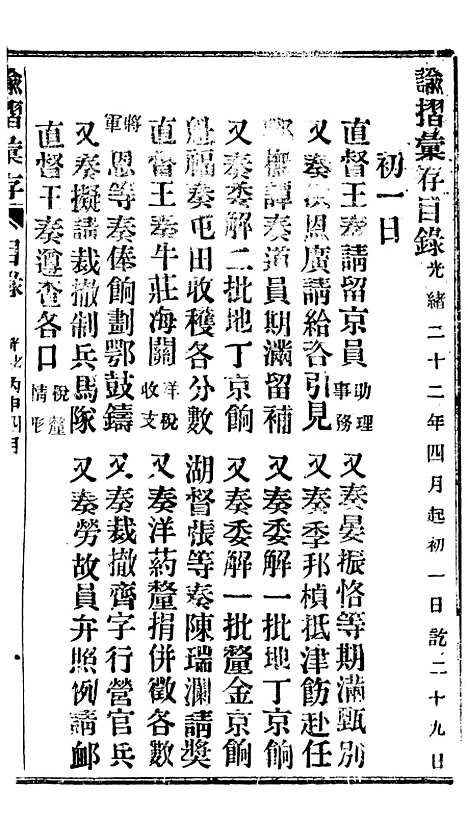 諭摺彙存目錄 光緒二十二年四月起初一日訖二十九日
初一日
直督王奏請留京員助理事務 又奏晏振恪等期滿甄別
又奏洪恩廣請給咨引見 又奏季邦楨抵津飭赴任
譚奏道員期滿留補 又奏委解一批地丁京餉
又奏委解二批地丁京餉 又奏委解一批釐金京餉
魁福奏屯田收穫各分數 湖督張等奏陳瑞瀾請獎
直督王奏牛莊海關洋稅收支 又奏洋葯釐捐併徵各數
將軍恩等奏俸餉劃鄂鼓鑄 又奏裁撤齊字行營官兵
又奏擬請裁撤制兵馬隊 又奏勞故員弁照例請卹
直督王奏遵查各口稅釐情形
諭摺彙存 目錄 丙申四月